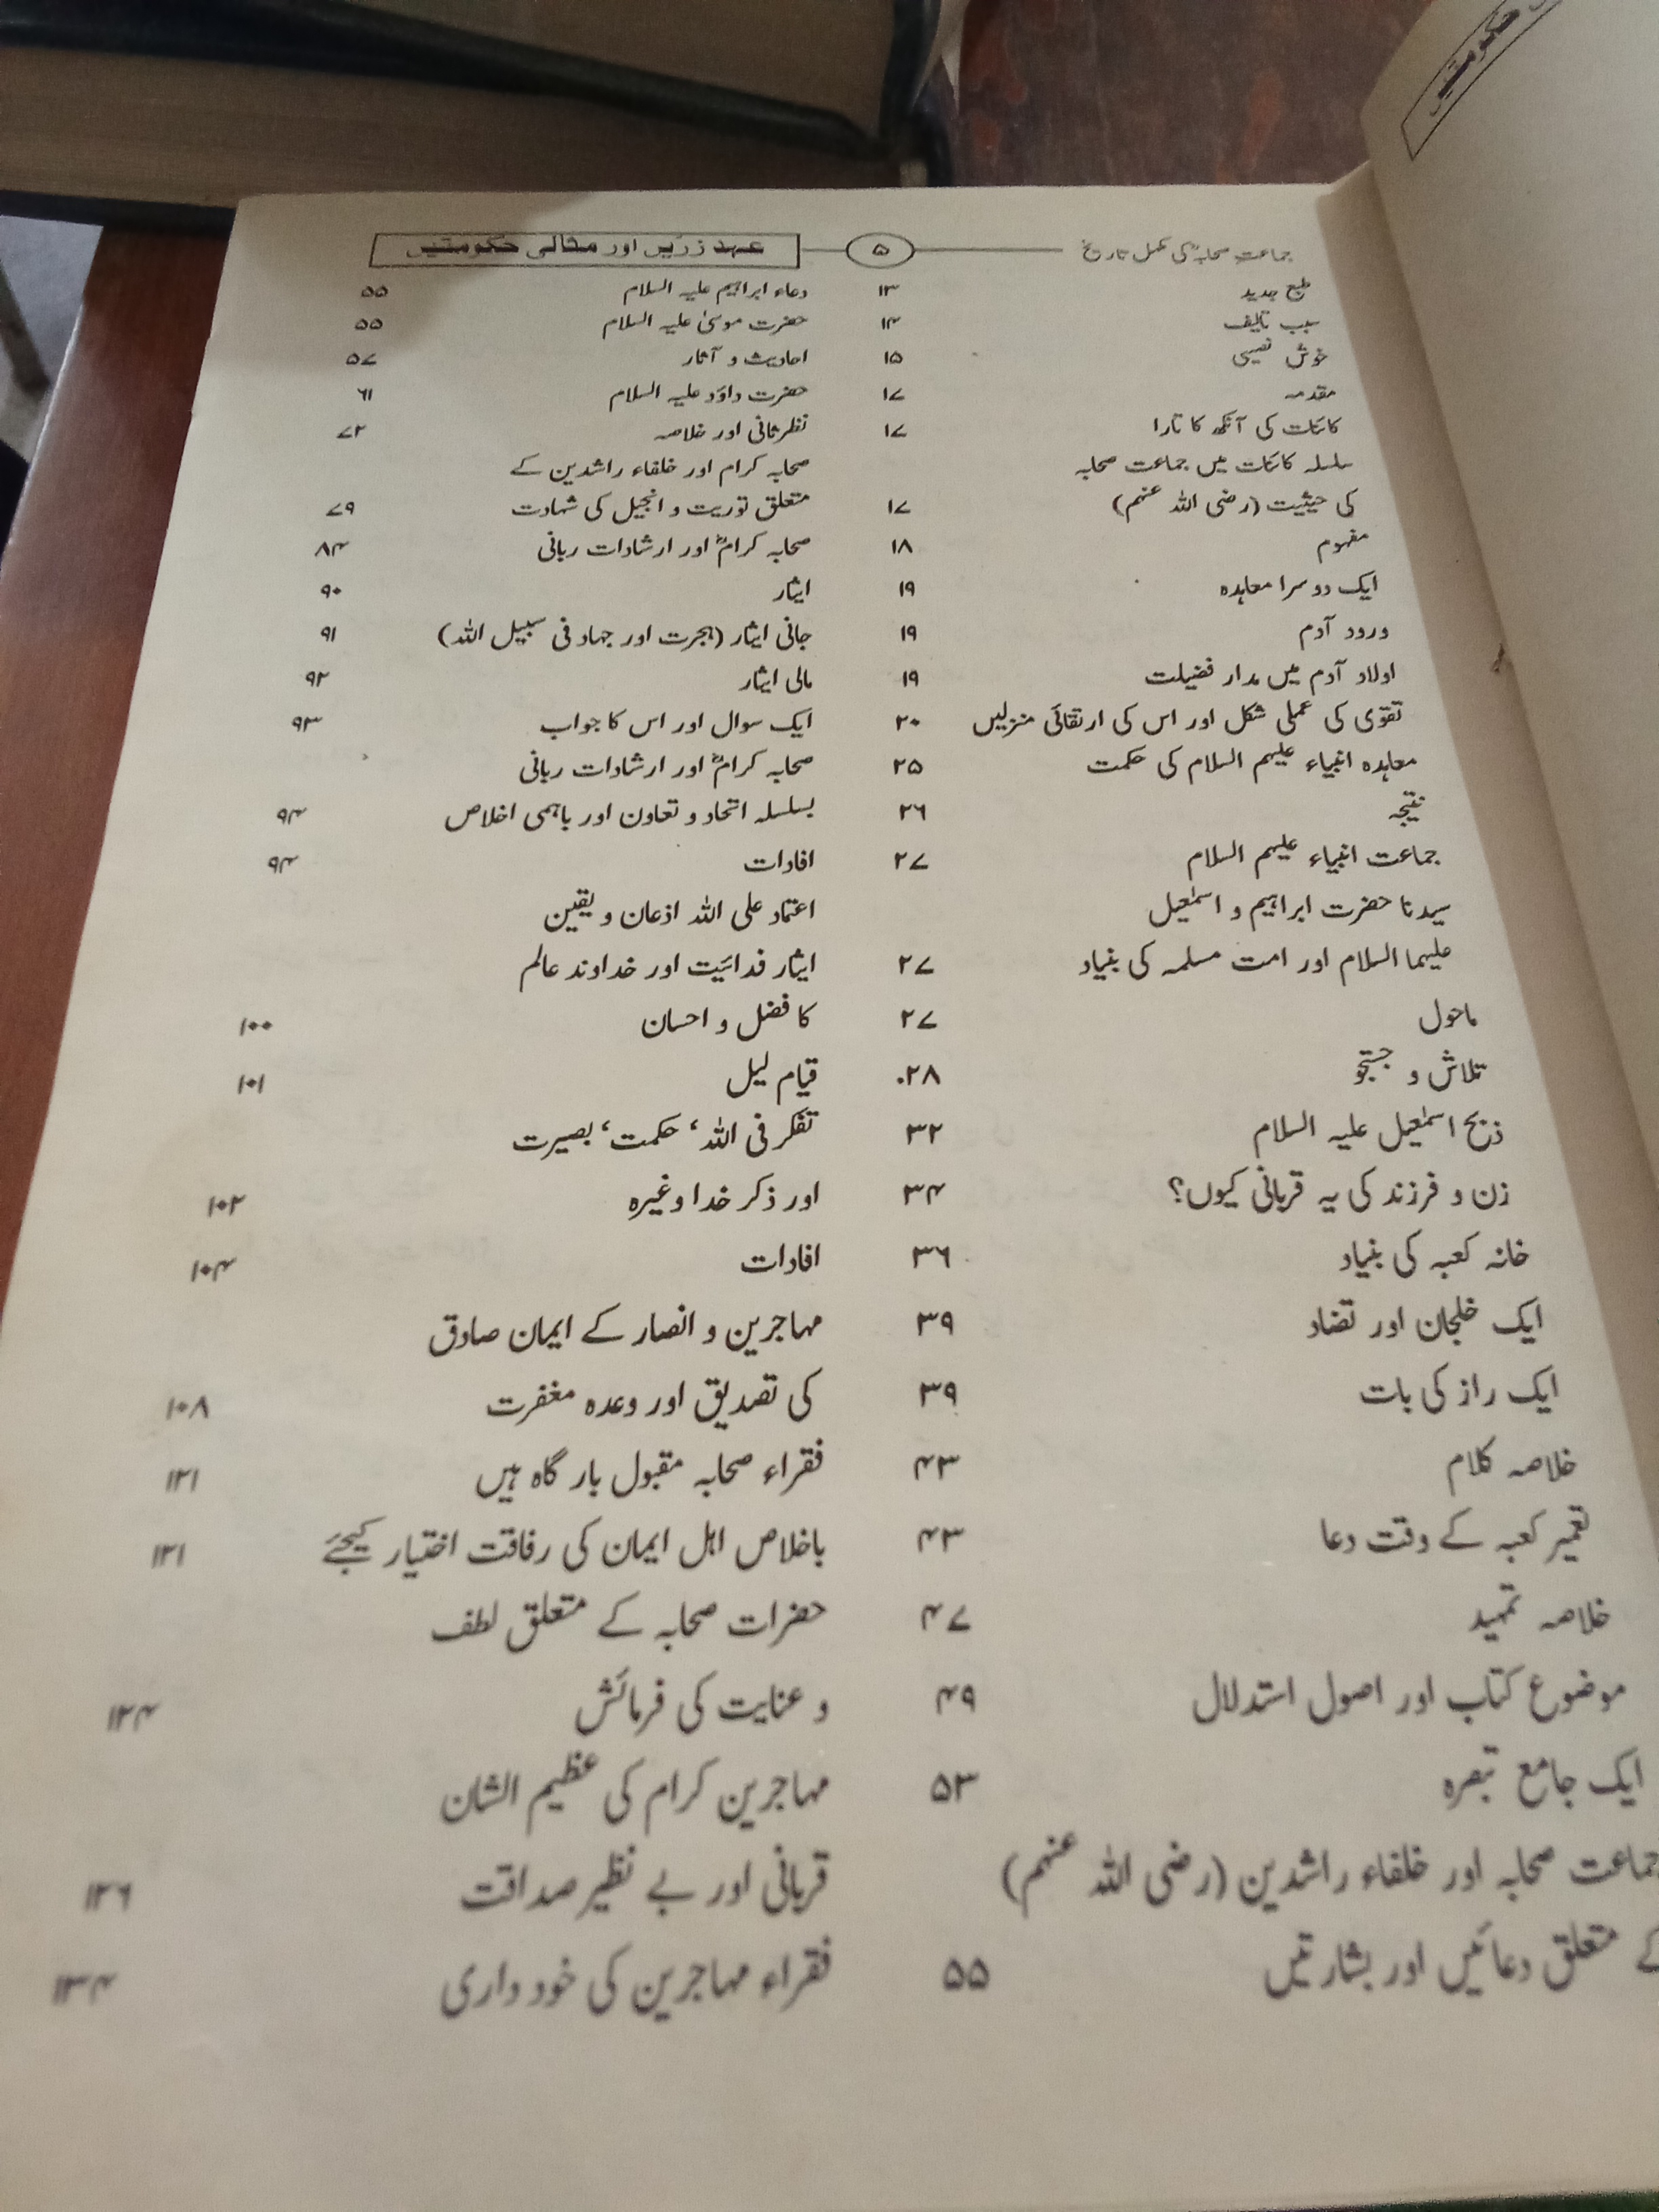 حکومتیں
جماعت صحابہؓ کی مکمل تاریخ ۵ عہد زریں اور مثالی حکومتیں
طبع جدید ۱۳
سبب تالیف ۱۴
خوش نصیبی ۱۵
مقدمہ ۱۷
کائنات کی آنکھ کا تارا ۱۷
سلسلہ کائنات میں جماعت صحابہ
کی حیثیت (رضی اللہ عنہم) ۱۷
مفہوم ۱۸
ایک دوسرا معاہدہ ۱۹
ورود آدم ۱۹
اولاد آدم میں مدار فضیلت ۱۹
تقوی کی عملی شکل اور اس کی ارتقائی منزلیں ۲۰
معاہدہ انبیاء علیہم السلام کی حکمت ۲۵
نتیجہ ۲۶
جماعت انبیاء علیہم السلام ۲۷
سیدنا حضرت ابراہیم و اسمٰعیل
علیہما السلام اور امت مسلمہ کی بنیاد ۲۷
ماحول ۲۷
تلاش و جستجو ۲۸
ذبح اسمٰعیل علیہ السلام ۳۲
زن و فرزند کی یہ قربانی کیوں؟ ۳۴
خانہ کعبہ کی بنیاد ۳۶
ایک خلجان اور تضاد ۳۹
ایک راز کی بات ۳۹
خلاصہ کلام ۴۳
تعمیر کعبہ کے وقت دعا ۴۳
خلاصہ تمہید ۴۷
موضوع کتاب اور اصول استدلال ۴۹
ایک جامع تبصرہ ۵۳
جماعت صحابہ اور خلفاء راشدین (رضی اللہ عنہم)
کے متعلق دعائیں اور بشارتیں ۵۵
دعاء ابراہیم علیہ السلام ۵۵
حضرت موسیٰ علیہ السلام ۵۵
احادیث و آثار ۵۷
حضرت داؤد علیہ السلام ۶۱
نظر ثانی اور خلاصہ ۷۲
صحابہ کرام اور خلفاء راشدین کے
متعلق توریت و انجیل کی شہادت ۷۹
صحابہ کرامؓ اور ارشادات ربانی ۸۴
ایثار ۹۰
جانی ایثار (ہجرت اور جہاد فی سبیل اللہ) ۹۱
مالی ایثار ۹۲
ایک سوال اور اس کا جواب ۹۳
صحابہ کرامؓ اور ارشادات ربانی
بسلسلہ اتحاد و تعاون اور باہمی اخلاص ۹۴
افادات ۹۴
اعتماد علی اللہ اذعان و یقین
ایثار فدائیت اور خداوند عالم
کا فضل و احسان ۱۰۰
قیام لیل ۱۰۱
تفکر فی اللہ، حکمت، بصیرت
اور ذکر خدا وغیرہ ۱۰۲
افادات ۱۰۴
مہاجرین و انصار کے ایمان صادق
کی تصدیق اور وعدہ مغفرت ۱۰۸
فقراء صحابہ مقبول بارگاہ ہیں ۱۲۱
باخلاص اہل ایمان کی رفاقت اختیار کیجئے ۱۲۱
حضرات صحابہ کے متعلق لطف
و عنایت کی فرمائش ۱۲۴
مہاجرین کرام کی عظیم الشان
قربانی اور بے نظیر صداقت ۱۲۶
فقراء مہاجرین کی خودداری ۱۳۴